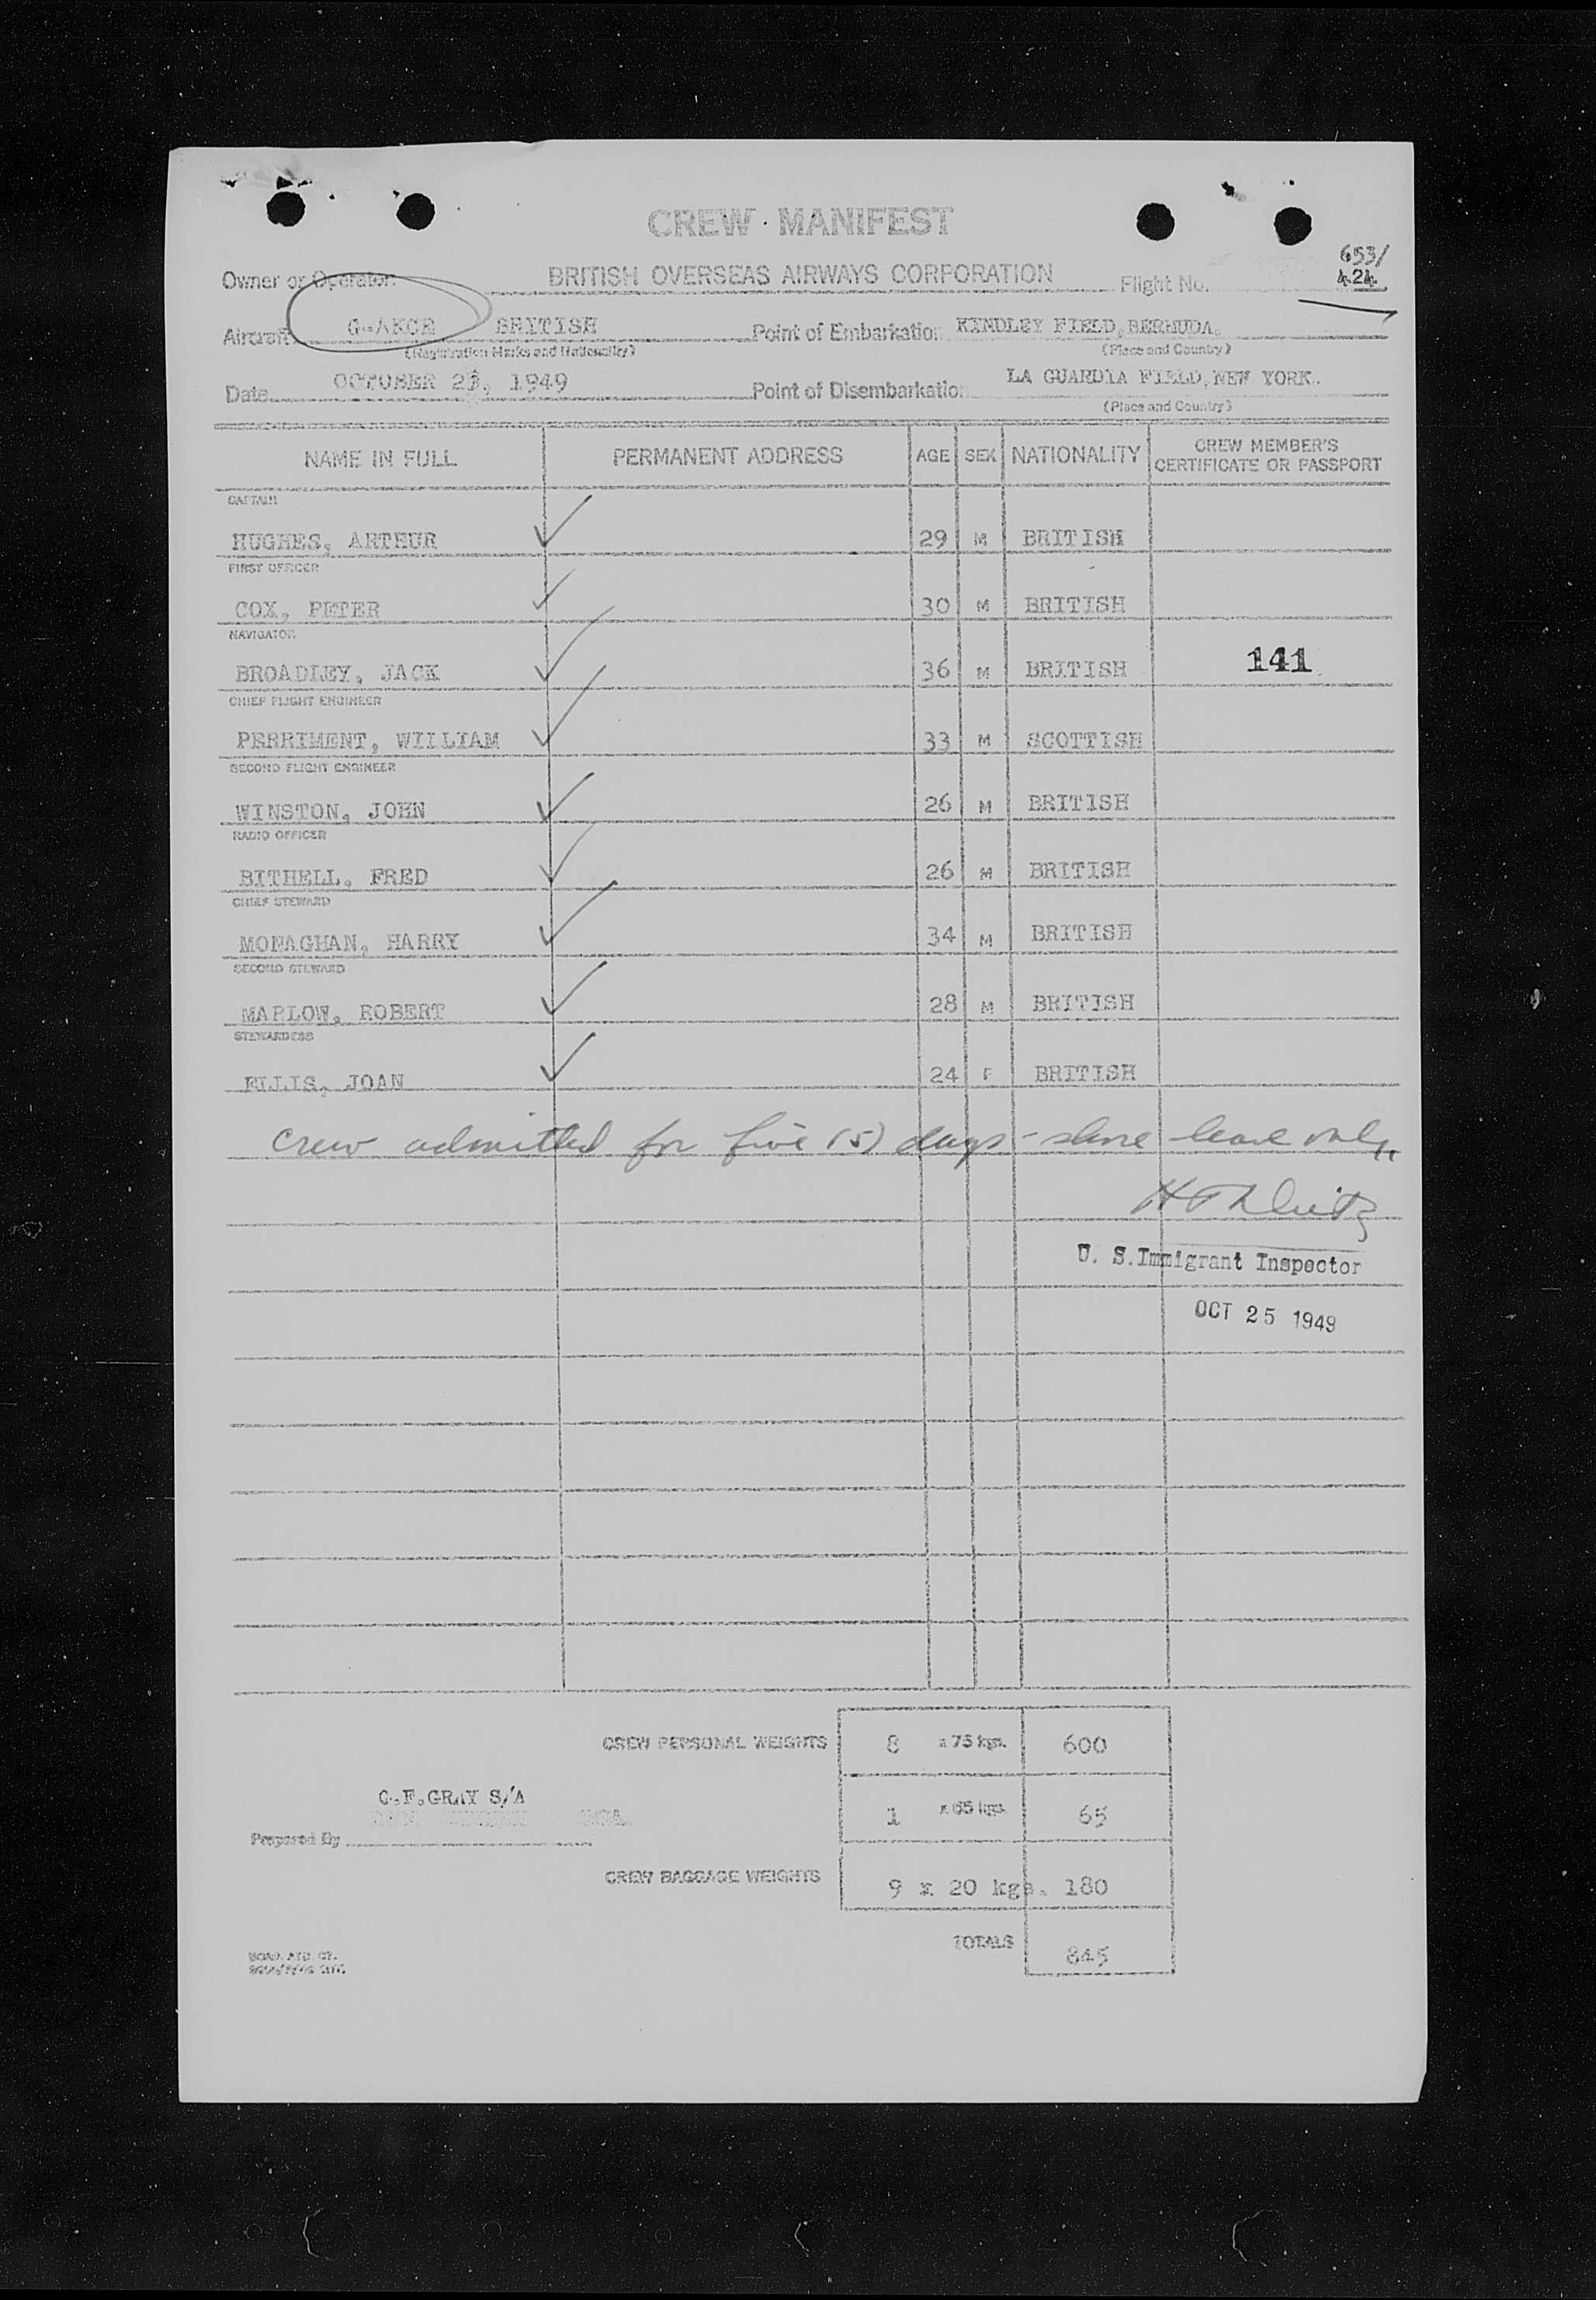 CREW MANIFEST
653/
Owner or Operator BRITISH OVERSEAS AIRWAYS CORPORATION Flight No. 424
Aircraft BRITISH Point of Embarkation KINDLEY FIELD, BERMUDA.
(Registration Marks and Nationality) (Place and Country)
Date OCTOBER 23, 1949 Point of Disembarkation LA GUARDIA FIELD, NEW YORK.
(Place and Country)
NAME IN FULL PERMANENT ADDRESS AGE SEX NATIONALITY CREW MEMBER'S CERTIFICATE OR PASSPORT
CAPTAIN
HUGHES, ARTHUR 29 M BRITISH
FIRST OFFICER
COX, PETER 30 M BRITISH
NAVIGATOR
BROADLEY, JACK 36 M BRITISH 141
CHIEF FLIGHT ENGINEER
PERRIMENT, WILLIAM 33 M SCOTTISH
SECOND FLIGHT ENGINEER
WINSTON, JOHN 26 M BRITISH
RADIO OFFICER
BITHELL, FRED 26 M BRITISH
CHIEF STEWARD
MONAGHAN, HARRY 34 M BRITISH
SECOND STEWARD
MARLOW, ROBERT 28 M BRITISH
STEWARDESS
ELLIS, JOAN 24 F BRITISH
Crew admitted for five (5) days - shore leave only.
U. S. Immigrant Inspector
OCT 25 1949
CREW PERSONAL WEIGHTS 8 x 75 kgs. 600
C.F.GRAY S/A
1 x 65 kgs. 65
Prepared By
CREW BAGGAGE WEIGHTS 9 x 20 kgs. 180
TOTALS 845